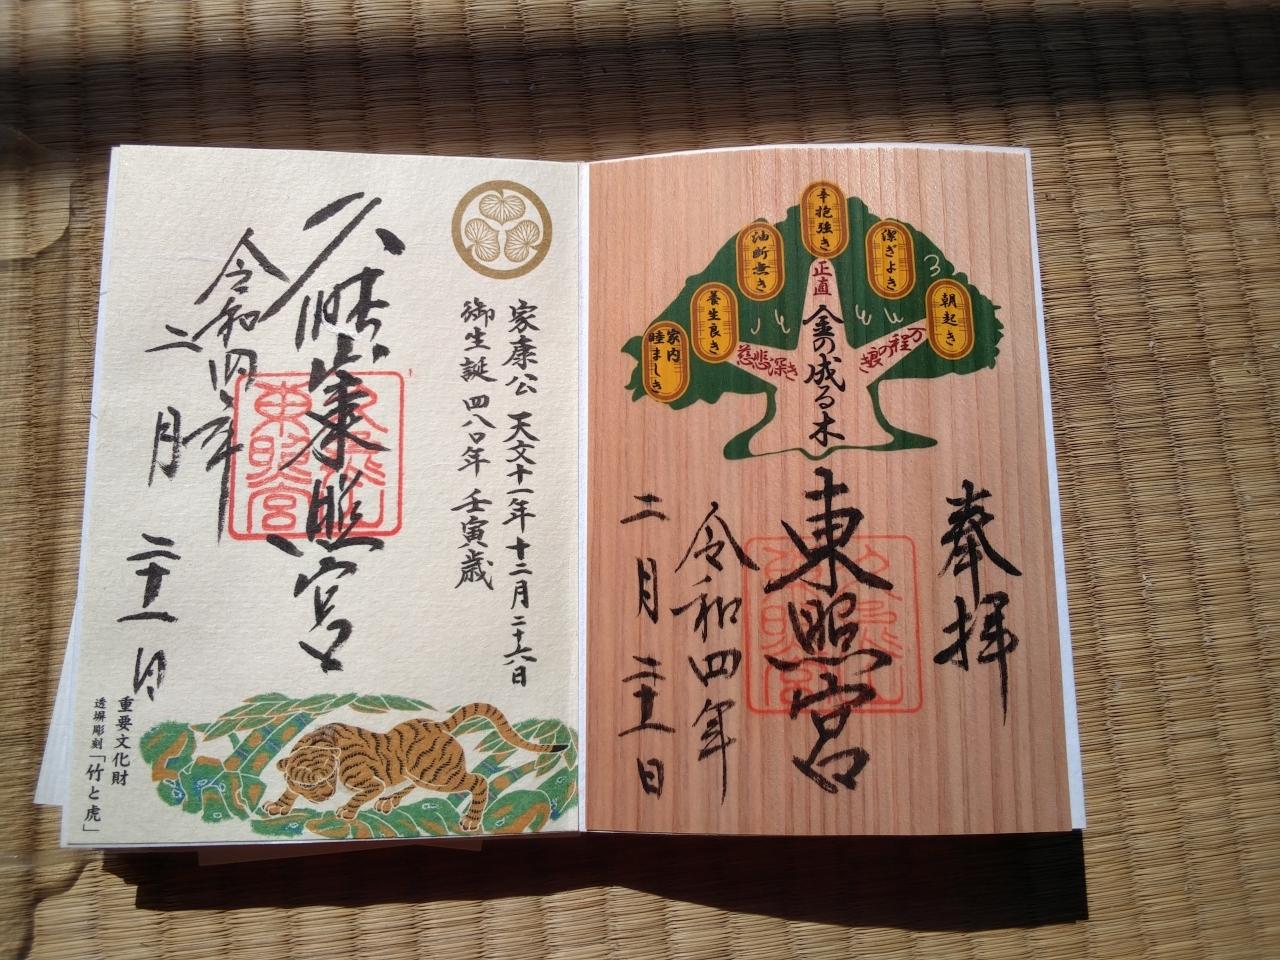 奉拝
辛抱強き
潔ぎよき
朝起き
油断無き
養生良き
家内
睦ましき
正直
慈悲深き
万の程の良き
金の成る木
東照宮
令和四年
二月二十二日
家康公 天文十一年十二月二十六日
御生誕 四八〇年 壬寅歳
久能山東照宮
令和四年
二月二十二日
重要文化財
透塀彫刻「竹と虎」